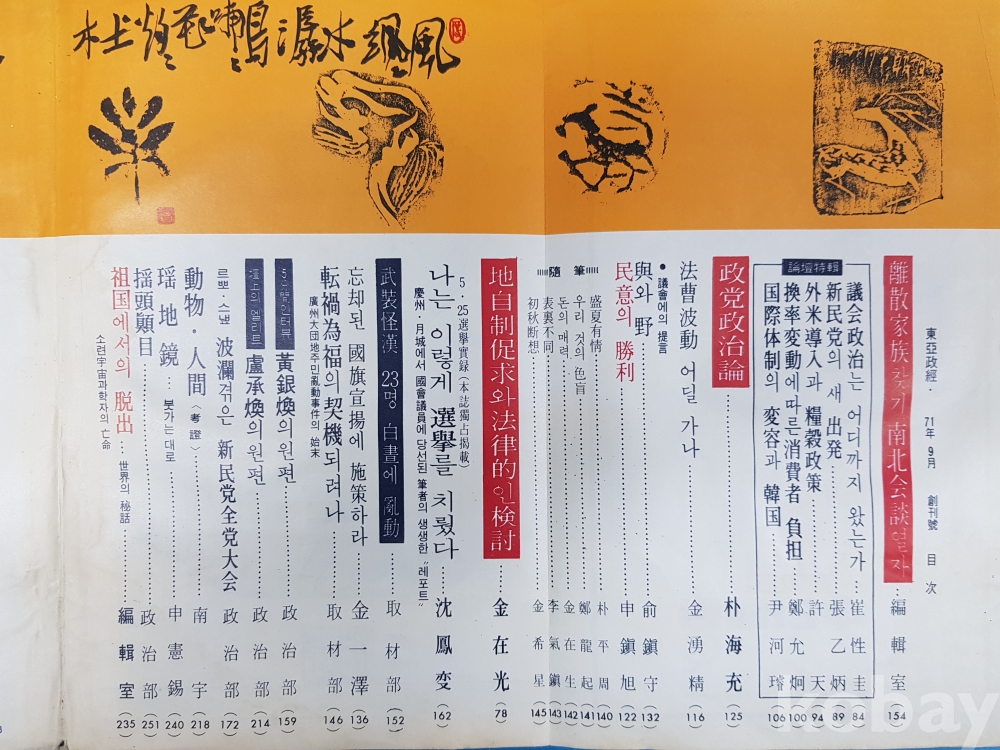 東亞政經・71年 9月 創刊號 目次
離散家族찾기 南北会談열자 … 編輯室 (154)
論壇特輯
議会政治는 어디까지 왔는가 … 崔性圭 (84)
新民党의 새 出発 … 張乙炳 (89)
外米導入과 糧穀政策 … 許天 (94)
換率変動에 따른 消費者 負担 … 鄭允炯 (100)
国際体制의 変容과 韓国 … 尹河璿 (106)
政党政治論 … 朴海充 (125)
法曹波動 어딜 가나 … 金湧精 (116)
● 議會에의 提言
與와 野 … 兪鎭守 (132)
民意의 勝利 … 申鎭旭 (122)
隨筆
盛夏有情 … 朴平周 (140)
우리 것의 色盲 … 鄭龍起 (141)
돈의 매력 … 金在生 (142)
表裏不同 … 李氣鎭 (143)
初秋断想 … 金希星 (145)
地自制促求와 法律的인 検討 … 金在光 (78)
5・25選擧實録 (本誌獨占揭載)
나는 이렇게 選擧를 치뤘다 … 沈鳳変 (162)
慶州・月城에서 國會議員에 당선된 筆者의 생생한 "레포트"
武装怪漢 23명 白晝에 亂動 … 取材部 (152)
忘却된 国旗宣揚에 施策하라 … 金一澤 (136)
転禍為福의 契機되려나 … 取材部 (146)
廣州大団地주민亂動事件의 始末
黃銀煥의 원편 … 政治部 (159)
壇上의 엘리트 盧承煥의 원편 … 政治部 (214)
르뽀・스냎 波瀾겪은 新民党全党大会 … 政治部 (172)
動物・人間 〈考證〉 … 南宇 (218)
瑶地鏡 … 붓가는대로 … 申憲錫 (240)
揺頭顚目 … 政治部 (251)
祖国에서의 脱出 … 世界의 秘話 … 編輯室 (235)
소련宇宙과학자의 亡命
kobay